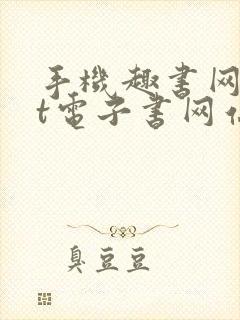 手機趣書网
t電子書网
臭豆豆